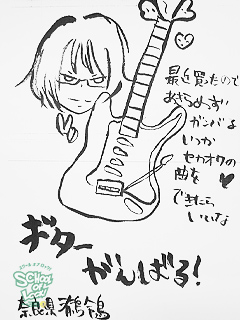 最近買ったので
あきらめーず
ガンバるよ
いつか
セカオワの
曲を
できたら
いいな
ギター
がんばる!
SCHOOL OF LOCK!
奈良県 鶺鴒